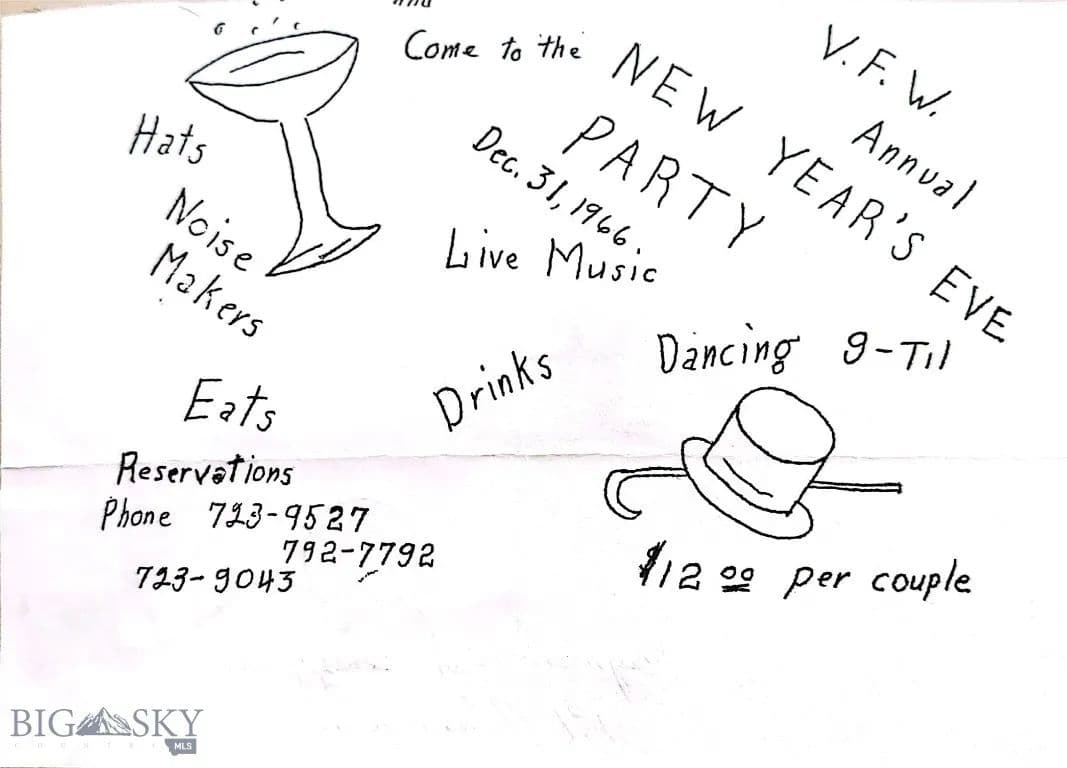 Come to the
V.F.W.
Annual
NEW YEAR'S EVE
PARTY
Dec. 31, 1966.
Live Music
Hats
Noise
Makers
Dancing 9-Til
Drinks
Eats
Reservations
Phone 723-9527
792-7792
723-9043
$12 00 per couple
BIG SKY
COUNTRY
MLS